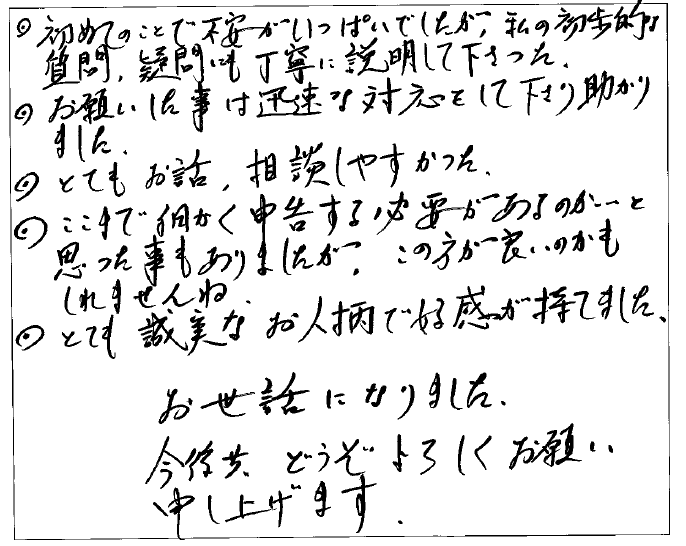 ◎ 初めてのことで不安がいっぱいでしたが、私の初歩的な
質問、疑問にも丁寧に説明して下さった.
◎ お願いした事は迅速な対応をして下さり助かり
ました.
◎ とてもお話、相談しやすかった.
◎ ここまで細かく申告する必要があるのか…と
思った事もありましたが、この方が良いのかも
しれませんね.
◎ とても誠実なお人柄で好感が持てました、
お世話になりました.
今後共、どうぞよろしくお願い
申し上げます.